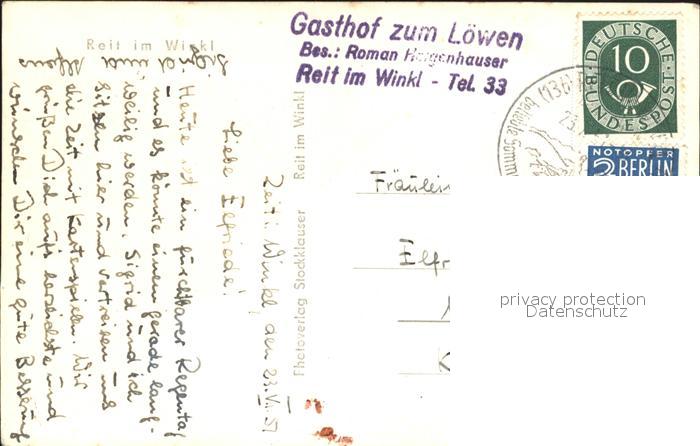 Reit im Winkl
Gasthof zum Löwen
Bes.: Roman Hergenhauser
Reit im Winkl - Tel. 33
DEUTSCHE
10
BUNDESPOST
NOTOPFER
2 BERLIN
(13b)
beliebte Somm
23.
Reit im Winkl
Photoverlag Stockklauser
Reit i. Winkl, den 23. VII. 51
Liebe Elfriede!
Heute ist ein furchtbarer Regentag
und es könnte einem gerade lang-
weilig werden. Sigrid und ich
sitzen hier und vertreiben uns
die Zeit mit Kartenspielen. Wir
grüßen Dich aufs herzlichste und
wünschen Dir eine gute Besserung
Sigrid und
Fräulein
Elfr
K
privacy protection
Datenschutz